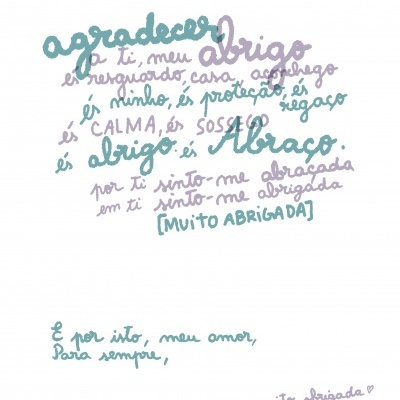 agradecer
a ti, meu abrigo
és resguardo, casa, aconhego
és ninho, és proteção, és
regaço
és CALMA, és SOSSEGO
és abrigo. és Abraço.
por ti sinto-me abraçada
em ti sinto-me abrigada
[MUITO ABRIGADA]
E por isto, meu amor,
Para sempre,
abrigada ♡